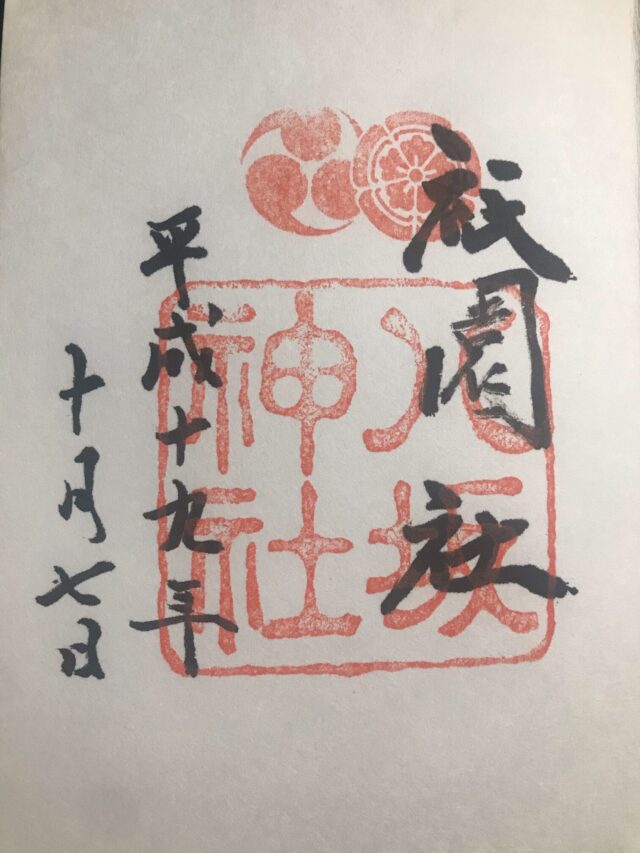 祇園社
八坂
神社
平成十九年
十月七日